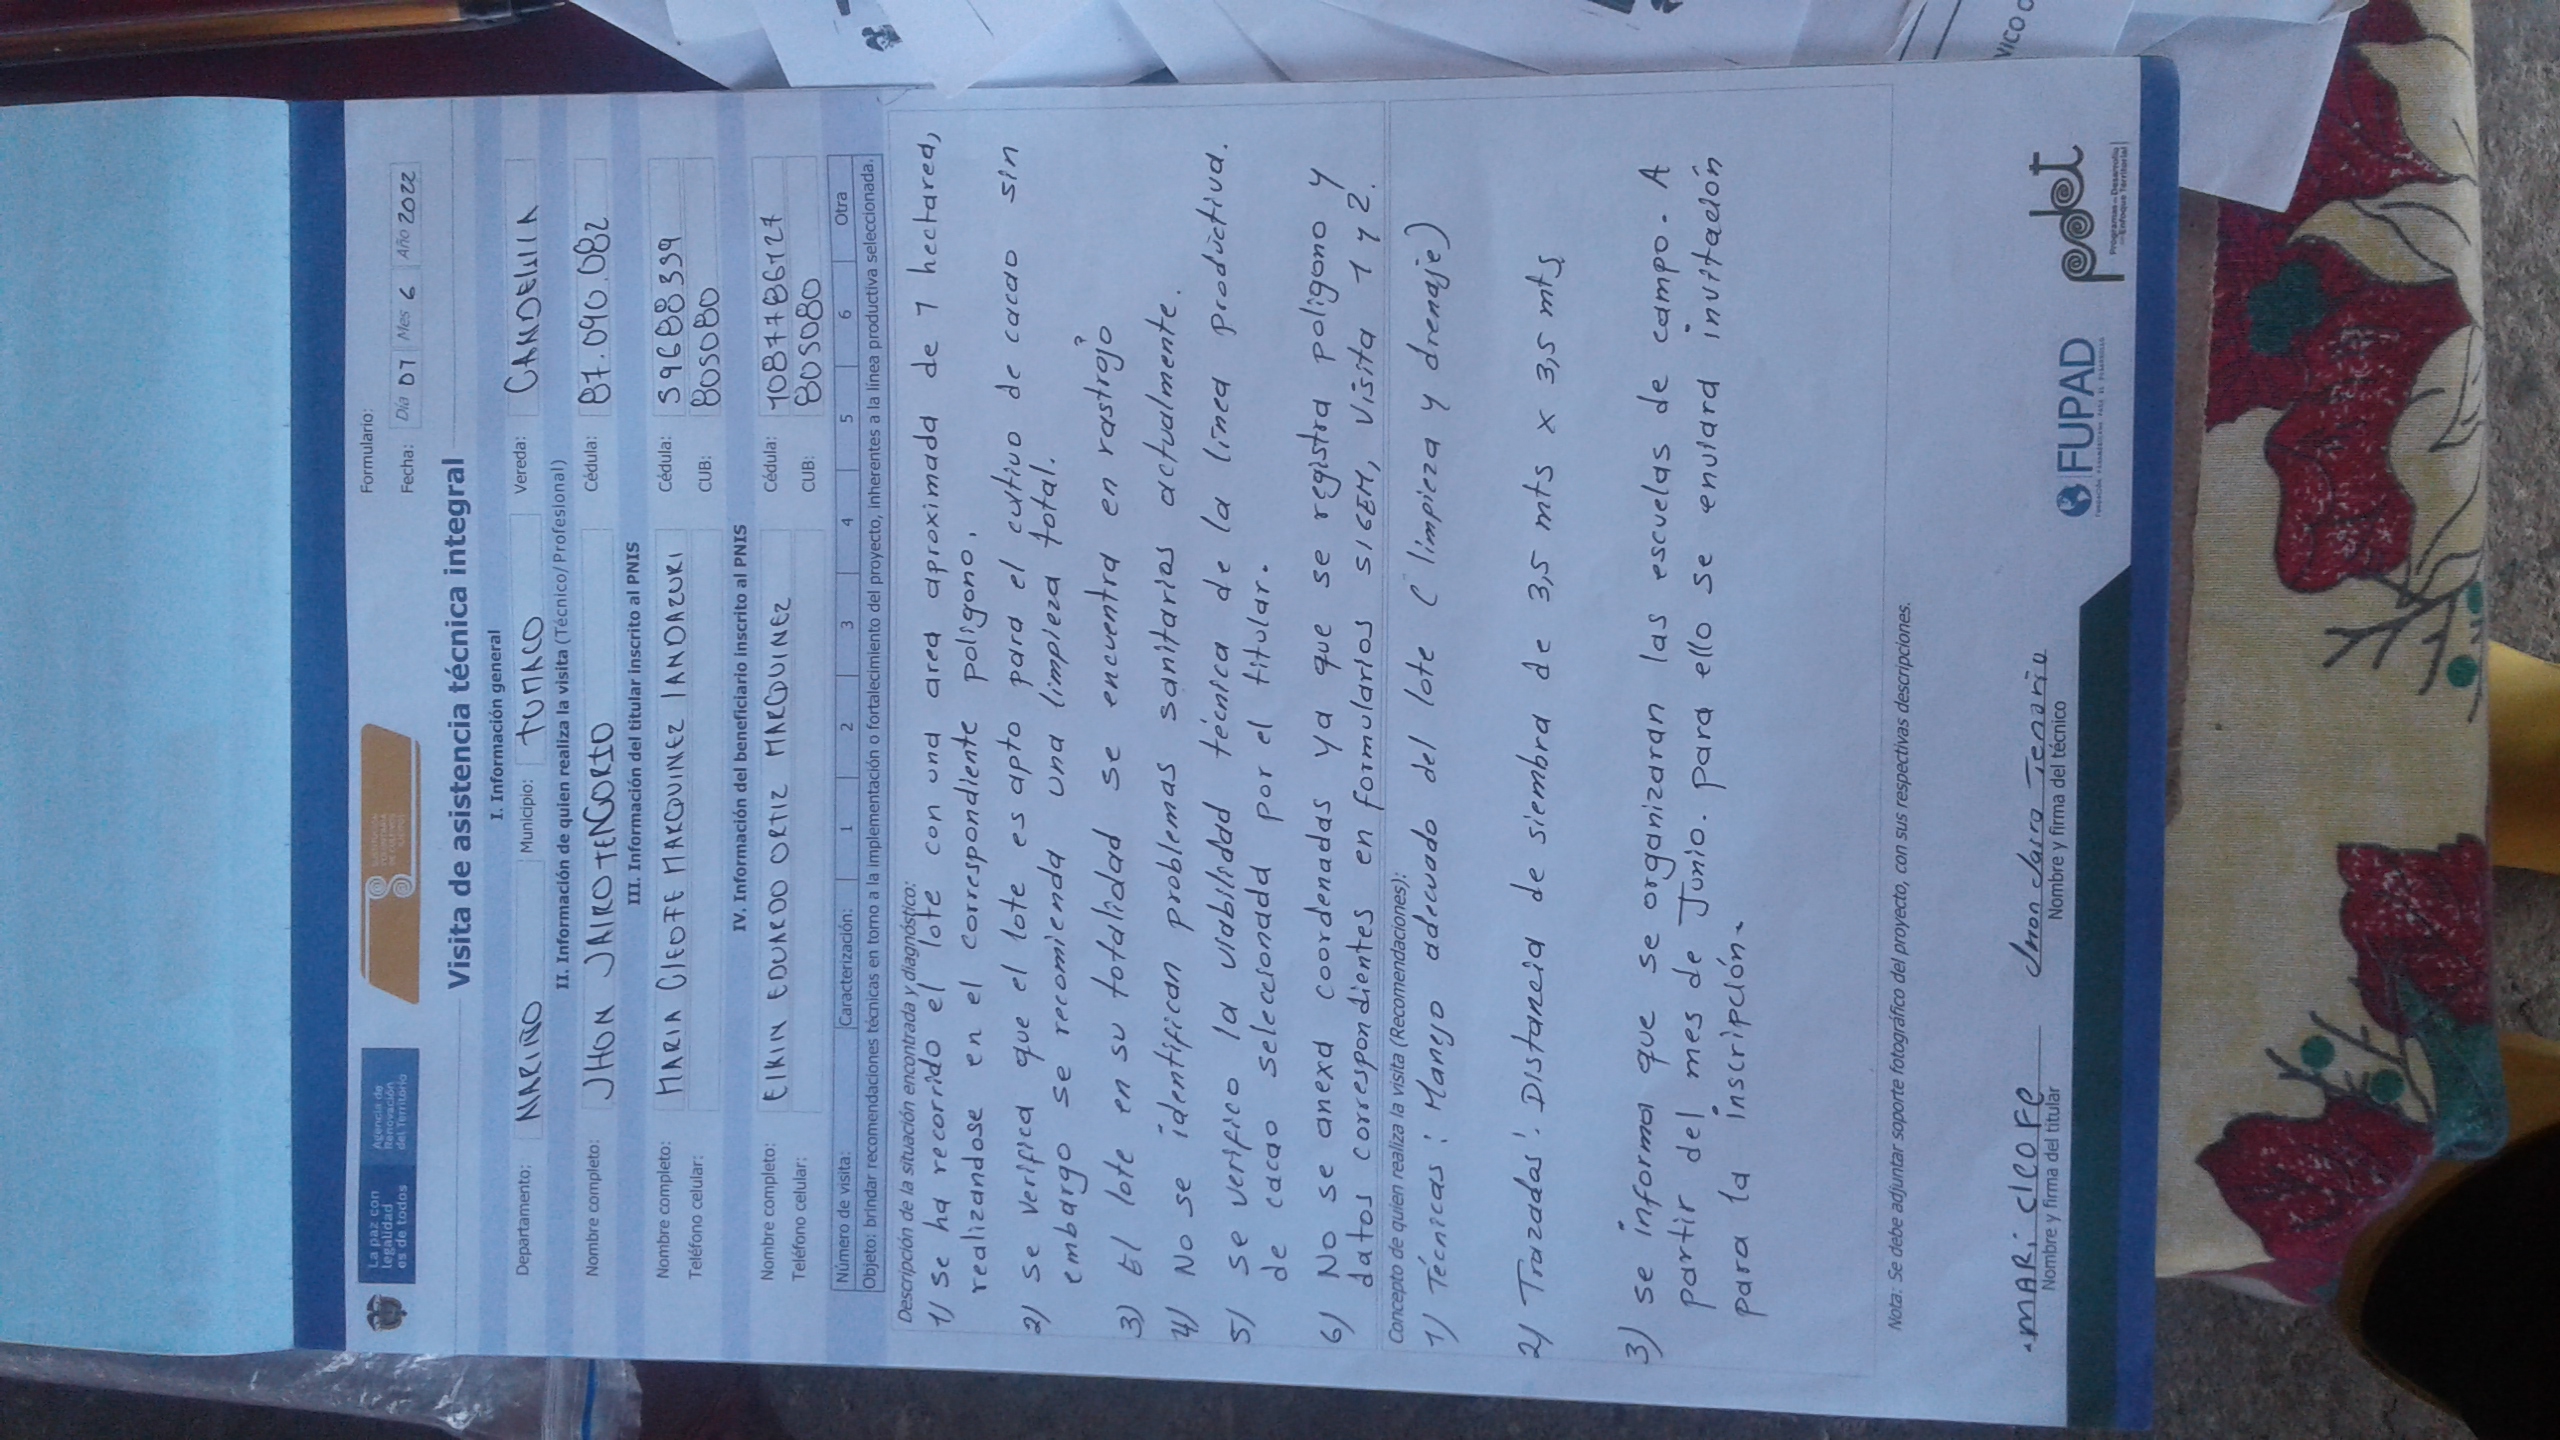 La paz con
legalidad
es de todos
Agencia de
Renovación
del Territorio
Formulario:
Fecha: Día 07 Mes 6 Año 2022
Visita de asistencia técnica integral
I. Información general
Departamento: NARIÑO Municipio: TUMACO Vereda: CANDELILLA
II. Información de quien realiza la visita (Técnico/ Profesional)
Nombre completo: JHON JAIRO TENORIO Cédula: 87.090.082
III. Información del titular inscrito al PNIS
Nombre completo: MARIA CLEOFE MARQUINEZ LANDAZURI Cédula: 59688339
Teléfono celular: CUB: 805080
IV. Información del beneficiario inscrito al PNIS
Nombre completo: ELKIN EDUARDO ORTIZ MARQUINEZ Cédula: 1087786127
Teléfono celular: CUB: 805080
Número de visita: Caracterización: 1 2 3 4 5 6 Otra
Objeto: brindar recomendaciones técnicas en torno a la implementación o fortalecimiento del proyecto, inherentes a la línea productiva seleccionada.
Descripción de la situación encontrada y diagnóstico:
1) se ha recorrido el lote con una area aproximada de 1 hectarea,
realizandose en el correspondiente poligono.
2) se verifica que el lote es apto para el cultivo de cacao sin
embargo se recomienda una limpieza total.
3) El lote en su totalidad se encuentra en rastrojo
4) No se identifican problemas sanitarios actualmente.
5) se verifico la viabilidad técnica de la línea productiva.
de cacao seleccionada por el titular.
6) No se anexa coordenadas ya que se registra poligono y
datos correspondientes en formularios SIGEM, Visita 1 y 2.
Concepto de quien realiza la visita (Recomendaciones):
1) Técnicas: Manejo adecuado del lote (limpieza y drenaje)
2) Trazadas: Distancia de siembra de 3,5 mts x 3,5 mts
3) se informa que se organizaran las escuelas de campo. A
partir del mes de Junio. para ello se enviara invitación
para la inscripción.
Nota: Se debe adjuntar soporte fotográfico del proyecto, con sus respectivas descripciones.
MARi clOFe Jhon Jairo Tenorio
Nombre y firma del titular Nombre y firma del técnico
FUPAD
pdet
Programas de Desarrollo
con Enfoque Territorial
VICO